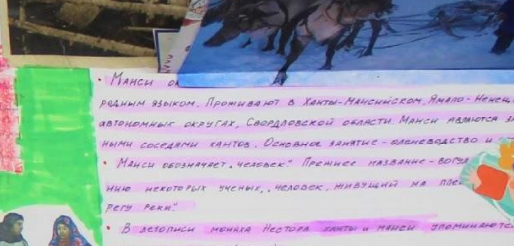 • Манси
родным языком. Проживают в Ханты-Мансийском, Ямало-Ненец
автономных округах, Свердловской области. Манси являются за
ными соседами хантов. Основное занятие-оленеводство и
• Манси обозначает „человек". Прежнее название-вогул
нию некоторых ученых, „человек, живущий на пле
регу реки".
• В летописи монаха Нестора ханты и манси упоминаютс